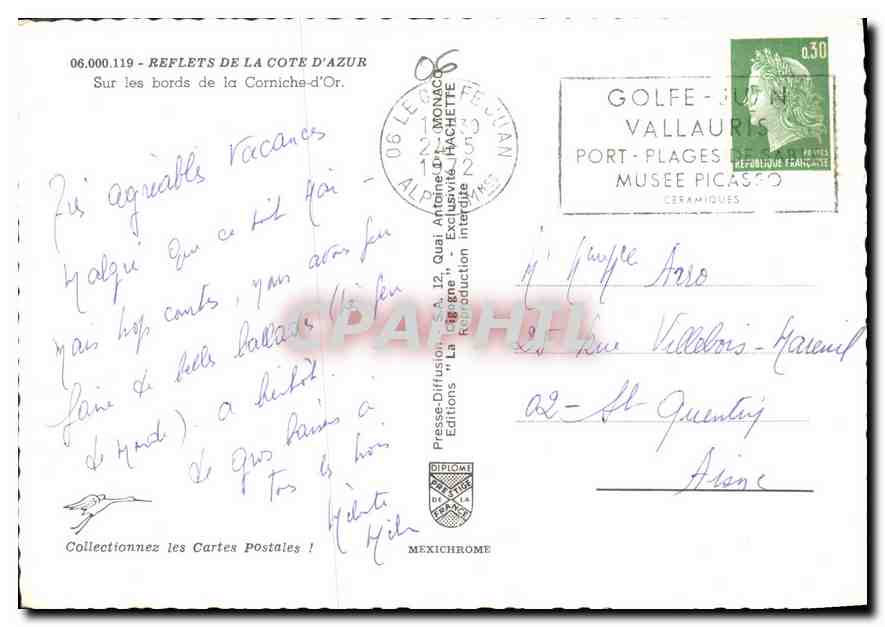 06.000.119 - REFLETS DE LA COTE D'AZUR
Sur les bords de la Corniche-d'Or.
06
06 LE GOLFE JUAN
ALP. MMES
GOLFE-JUAN
VALLAURIS
PORT-PLAGES DE SABLE
MUSEE PICASSO
CERAMIQUES
0,30
POSTES
REPUBLIQUE FRANÇAISE
Très agréables vacances
Malgré que ce soit Mai -
Mais trop courtes, nous avons peu
faire de belles ballades (très peu
de monde). a bientôt.
de gros baisers à
tous les trois
Presse-Diffusion S.A. 12, Quai Antoine 1er - MONACO
Editions "La Cigogne" - Exclusivité HACHETTE
Reproduction interdite
CPAPHIL
25 Rue Villebois-Mareuil
02- St Quentin
Aisne
DIPLOME
PRESTIGE
DE LA
FRANCE
MEXICHROME
Collectionnez les Cartes Postales !